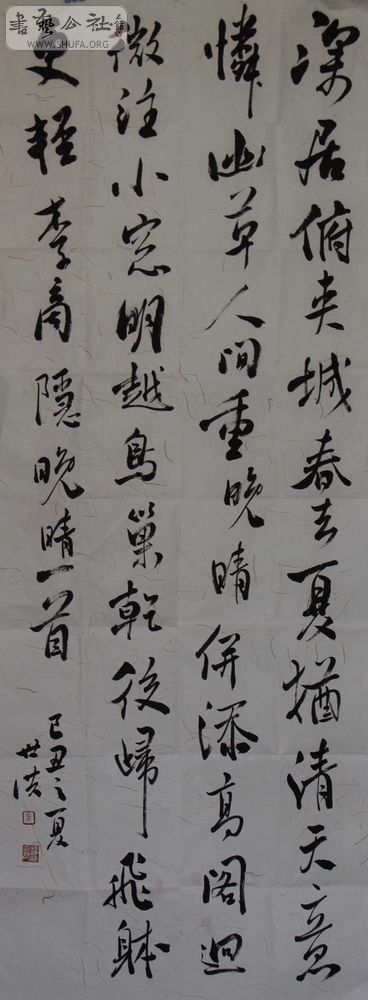 書藝公社
WWW.SHUFA.ORG
深居俯夾城春去夏猶清天意
憐幽草人间重晚晴併添高阁迥
微注小窓明越鳥巢乾後歸飛躰
更輕李商隱晚晴一首
己丑之夏
世